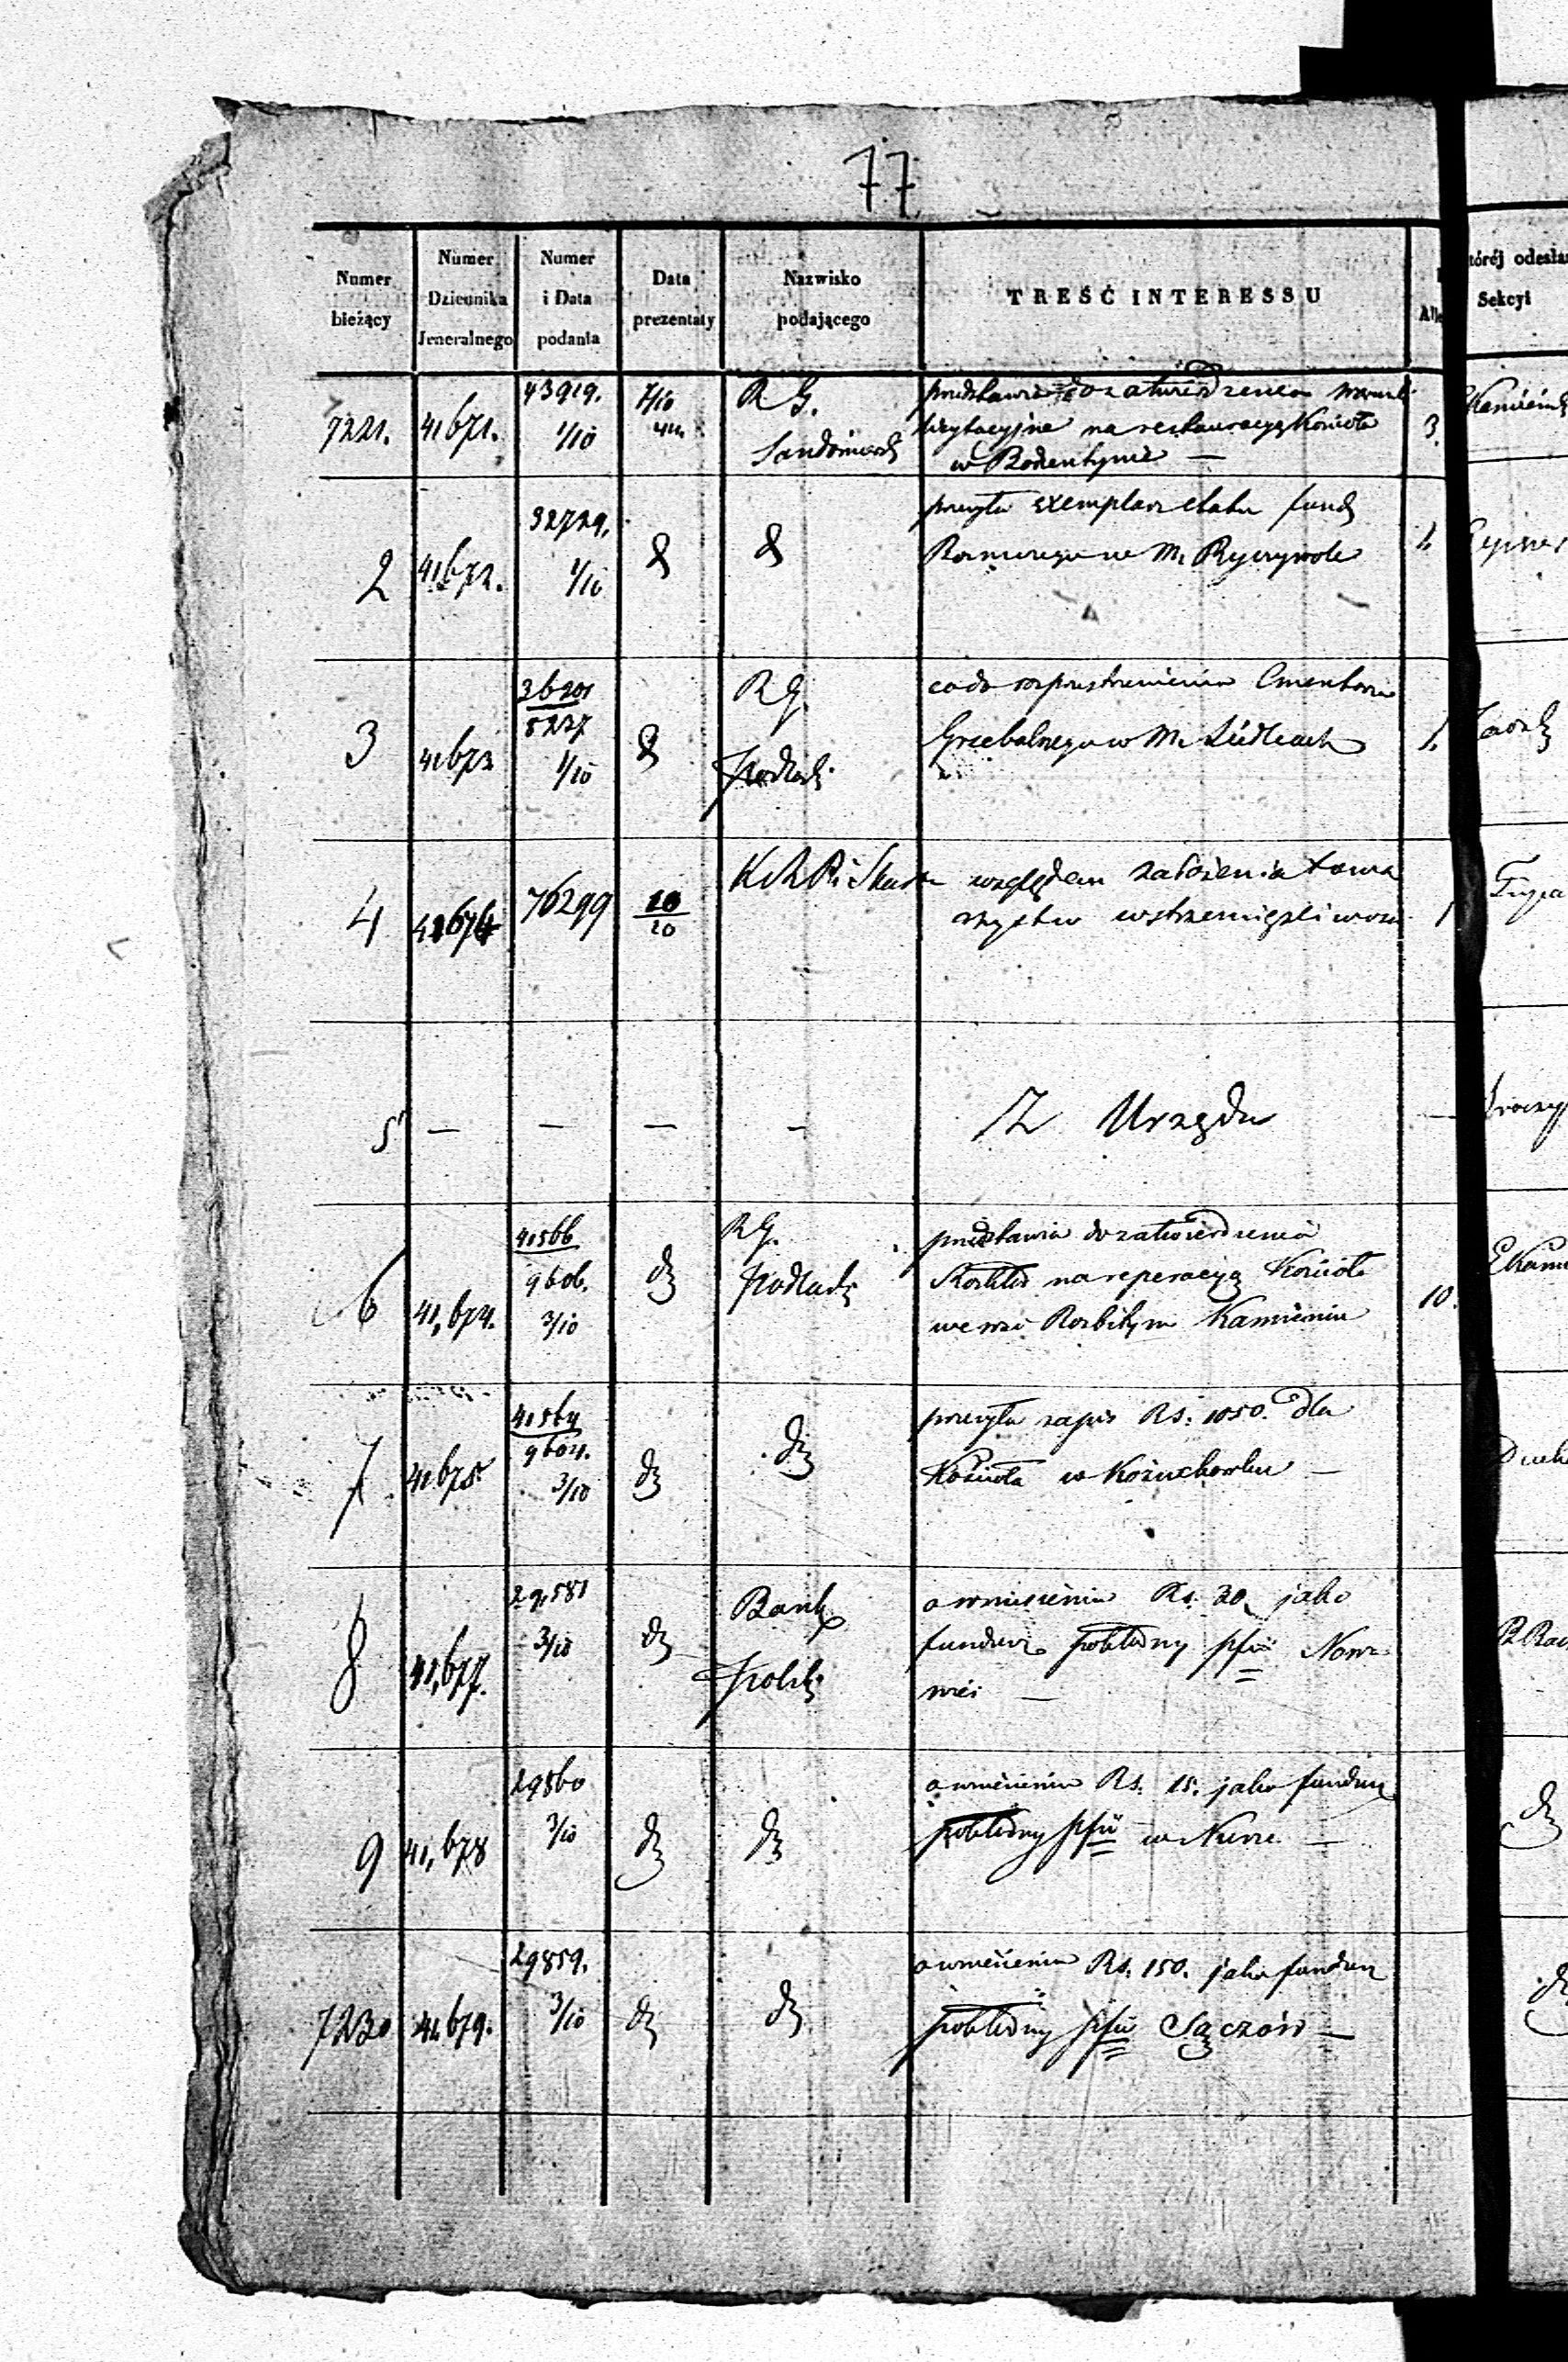 77
Numer bieżący
Numer Dziennika Jeneralnego
Numer i Data podania
Data prezentaty
Nazwisko podającego
TREŚĆ INTERESSU
której odesła
Sekcyi
7221. 41671. 43919. 1/10 7/10 44. R G. Sandomiersk
przedstawia do zatwierdzenia warunki
licytacyjne na restauracyą Kościoła 3.
w Bodzentynie —
2 41672. 32729. 1/10 d d
przesyła exemplarz etatu fund
w M. Ryczywole
3 41673 3620 5227 1/10 d R G. Podlaski
co do rozprzestrzenienia Cmentarza
Grzebalnego w M. Siedlcach 1.
4 41674 76299 10/10 K R P i Skarbu
względem założenia towa
rzystw wstrzemięźliwości 1
5 — — — — Z Urzędu —
6 41,674. 41566 9606. 3/10 d R G. Podlaski
przedstawia do zatwierdzenia
Rozkład na reperacyą Kościoła
we wsi Rozbitym Kamieniu 10.
7 41675 41564 9604. 3/10 d d
przesyła zapis Rs: 1050. dla
Kościoła w Kożuchówku —
8 41,677. 29,581 3/10 d Bank Polski
o wniesieniu Rs. 30. jako
fundusz pokładny Nowa
wieś —
9 41,678 29560 3/10 d d
o wniesieniu Rs. 15. jako fundusz
pokładny w Nurze —
7230 41679. 29859. 3/10 d d
o wniesieniu Rs. 150. jako fundusz
pokładny Sączów —